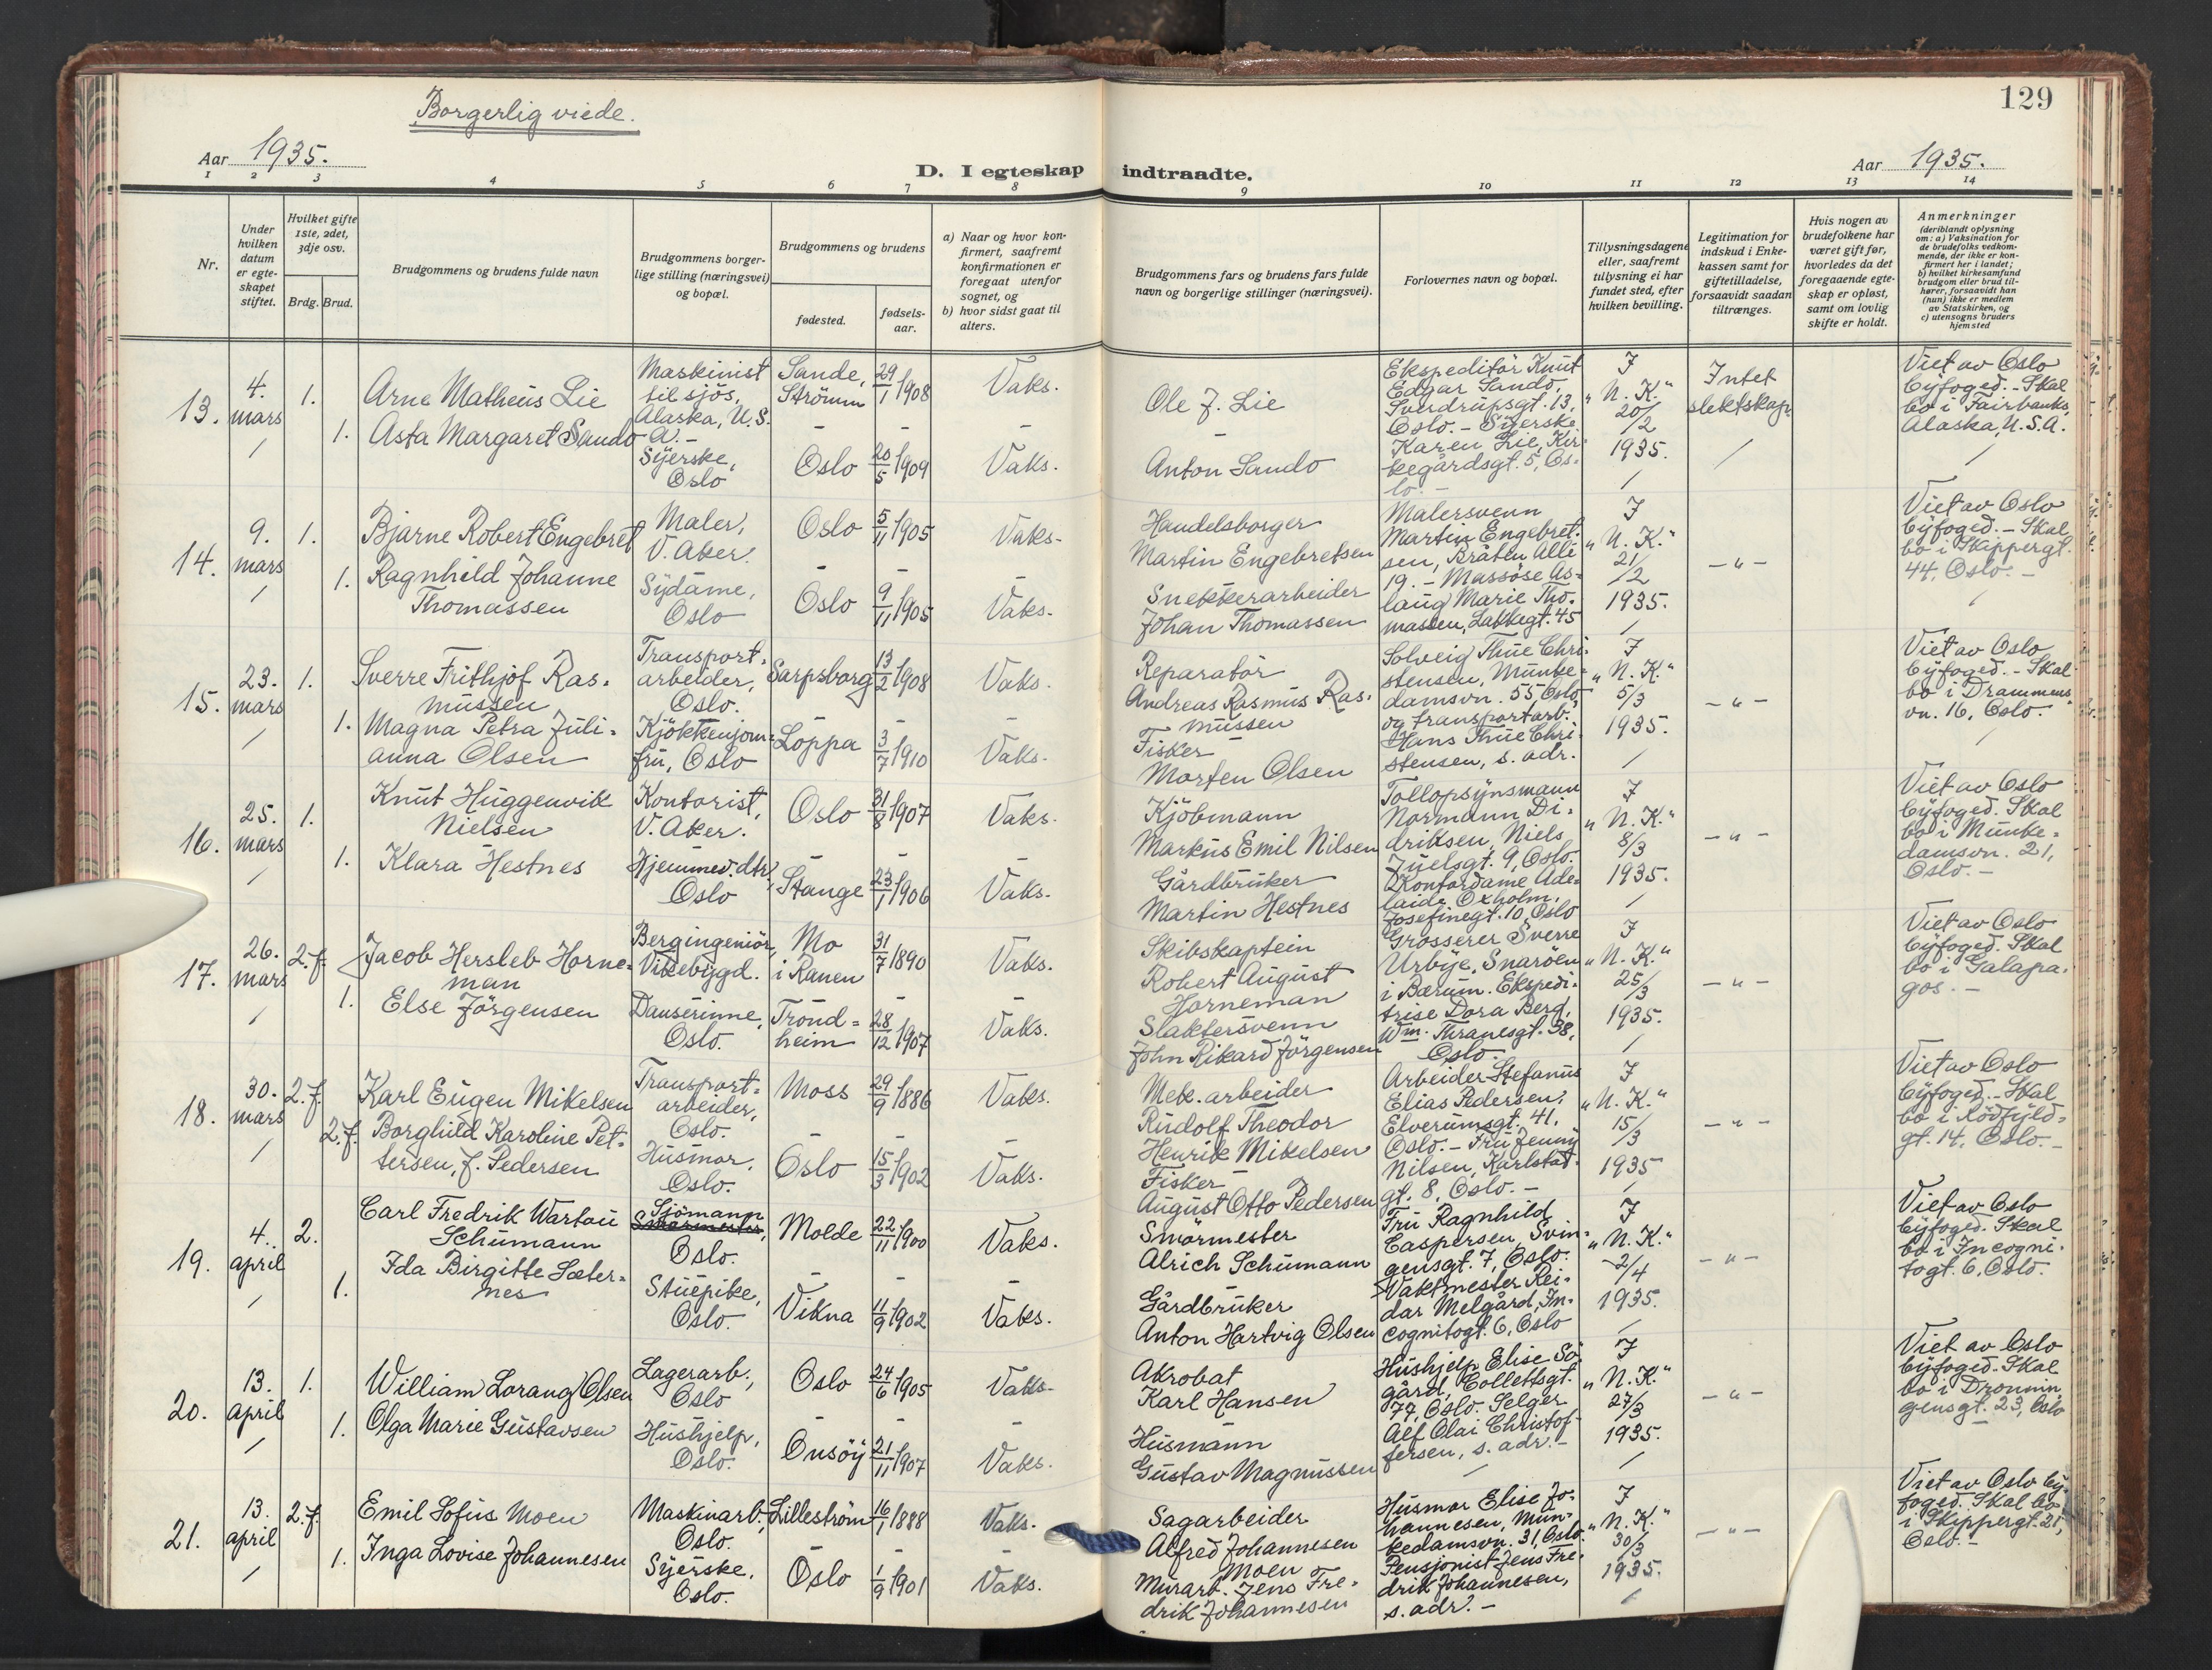 129
Borgerlig viede.
Aar 1935.
D. I egteskap indtraadte.
Aar 1935.
1 2 3 4 5 6 7 8 9 10 11 12 13 14
Nr.
Under hvilken datum er egteskapet stiftet.
Hvilket gifte 1ste, 2det, 3dje osv.
Brdg. Brud.
Brudgommens og brudens fulde navn
Brudgommens borgerlige stilling (næringsvei) og bopæl.
Brudgommens og brudens
fødested.
fødselsaar.
a) Naar og hvor konfirmert, saafremt konfirmationen er foregaat utenfor sognet, og
b) hvor sidst gaat til alters.
Brudgommens fars og brudens fars fulde navn og borgerlige stillinger (næringsvei).
Forlovernes navn og bopæl.
Tillysningsdagene eller, saafremt tillysning ei har fundet sted, efter hvilken bevilling.
Legitimation for indskud i Enkekassen samt for giftetilladelse, forsaavidt saadan tiltrænges.
Hvis nogen av brudefolkene har været gift før, hvorledes da det foregaaende egteskap er opløst, samt om lovlig skifte er holdt.
Anmerkninger (deriblandt oplysning om: a) Vaksination for de brudefolks vedkommende, der ikke er konfirmert her i landet; b) hvilket kirkesamfund brudgom eller brud tilhører, forsaavidt han (hun) ikke er medlem av Statskirken, og c) utensogns bruders hjemsted
13.
4. mars
1.
Arne Matheus Lie
Maskinist til sjös, Alaska, U.S.A.-
Sande, Strömm
29/1 1908
Vaks.
Ole J. Lie
1.
Asta Margaret Sando
Syerske, Oslo
Oslo
20/5 1909
Vaks.
Anton Sando
Ekspeditör Knut Edgar Sando, Sverdrupsgt. 13, Oslo. - Syerske Karen Lie, Kirkegårdsgt. 5, Oslo. -
I "N.K." 20/2 1935.
Intet slektskap.
Viet av Oslo byfoged. - Skal bo i Fairbanks, Alaska, U.S.A.
14.
9. mars
1.
Bjarne Robert Engebret
Maler, V. Aker.
Oslo
5/11 1905
Vaks-
Handelsborger Martin Engebretsen
1.
Ragnhild Johanne Thomassen
Sydame, Oslo
Oslo
9/11 1905
Vaks.
Snekkerarbeider Johan Thomassen
Malersvenn Martin Engebretsen, Bråten Allé 19. - Massöse Aslaug Marie Thomassen, Lakkegt. 45
I "N.K." 21/2 1935.
- " -
Viet av Oslo byfoged. - Skal bo i Skippergt. 44, Oslo. -
15.
23. mars
1.
Sverre Frithjof Rasmussen
Transportarbeider, Oslo.
Sarpsborg
13/2 1908
Vaks.
Reparatör Andreas Rasmus Rasmussen
1.
Magna Petra Julianna Olsen
Kjökkenjomfru, Oslo
Loppa
3/7 1910
Vaks.
Fisker Morten Olsen
Solveig Thue Christensen, Munkedamsvn. 55 Oslo, og transportarb. Hans Thue Christensen, s. adr.
I "N.K." 5/3 1935.
- " -
Viet av Oslo byfoged. - Skal bo i Drammensvn. 16, Oslo.
16.
25. mars
1.
Knut Huggenvik Nielsen
Kontorist, V. Aker.
Oslo
31/8 1907
Vaks.
Kjöbmann Markus Emil Nilsen
1.
Klara Hestnes
Hjemmev. dtr, Oslo
Stange
23/1 1906
Vaks.
Gårdbruker Martin Hestnes
Tollopsynsmann Normann Didriksen, Niels Juelsgt. 9, Oslo. Kontordame Adelaide Oxholm, Josefinegt. 10, Oslo
I "N.K." 8/3 1935.
- " -
Viet av Oslo byfoged. Skal bo i Munkedamsvn. 21, Oslo. -
17.
26. mars
2. f.
Jacob Hersleb Horneman
Bergingeniör, Vikebygd.
Mo i Ranen
31/7 1890
Vaks.
Skibskaptein Robert August Horneman
1.
Else Jörgensen
Danserinne, Oslo.
Trondheim
28/12 1907
Vaks.
Slaktersvenn John Rikard Jörgensen
Grosserer Sverre Urbye, Snaröen i Bærum. Ekspeditrise Dora Berg, Wm. Thranesgt. 38, Oslo.
I "N.K." 25/3 1935.
- " -
Viet av Oslo byfoged. Skal bo i Galapagos. -
18.
30. mars
2. f.
Karl Eugen Mikelsen
Transportarbeider, Oslo.
Moss
29/9 1886
Vaks.
Mek. arbeider Rudolf Theodor Henrik Mikelsen
2. f.
Borghild Karoline Pettersen, f. Pedersen
Husmor, Oslo.
Oslo
15/3 1902
Vaks.
Fisker August Otto Pedersen
Arbeider Stefanus Elias Pedersen, Elverumsgt. 41, Oslo. - Fru Jenny Nilsen, Karlstadgt. 8, Oslo. -
I "N.K." 15/3 1935
- " -
Viet av Oslo byfoged. - Skal bo i Rödfyldgt. 14, Oslo. -
19.
4. april
2.
Carl Fredrik Wartau Schumann
Sjömann Smörmester, Oslo.
Molde
22/11 1900
Vaks.
Smörmester Alrich Schumann
1.
Ida Birgitte Sæternes
Stuepike, Oslo.
Vikna
11/9 1902
Vaks.
Gårdbruker Anton Hartvig Olsen
Fru Ragnhild Caspersen, Svingensgt. 7, Oslo. Vaktmester Reidar Melgård, Incognitogt. 6, Oslo
I "N.K." 2/4 1935.
- " -
Viet av Oslo byfoged. Skal bo i Incognitogt. 6, Oslo.
20.
13. april
1.
William Lorang Olsen
Lagerarb., Oslo
Oslo
24/6 1905
Vaks-
Akrobat Karl Hansen
1.
Olga Marie Gustavsen
Hushjelp, Oslo.
Onsöy
21/11 1907
Vaks.
Husmann Gustav Magnussen
Hushjelp Elise Sögård, Collettsgt. 77, Oslo. Selger Alf Olai Christoffersen, s. adr. -
I "N.K." 27/3 1935.
- " -
Viet av Oslo byfoged. Skal bo i Dronningensgt. 23, Oslo
21.
13. april
2. f.
Emil Sofus Moen
Maskinarb., Oslo.
Lilleström
16/1 1888
Vaks.
Sagarbeider Alfred Johannesen Moen
1.
Inga Lovise Johannesen
Syerske, Oslo.
Oslo
1/9 1901
Vaks.
Murarb. Jens Fredrik Johannesen
Husmor Elise Johannesen, Munkedamsvn. 31, Oslo. Pensjonist Jens Fredrik Johannesen, s. adr. -
I "N.K." 30/3 1935.
- " -
Viet av Oslo byfoged. Skal bo i Skippergt. 21, Oslo. -